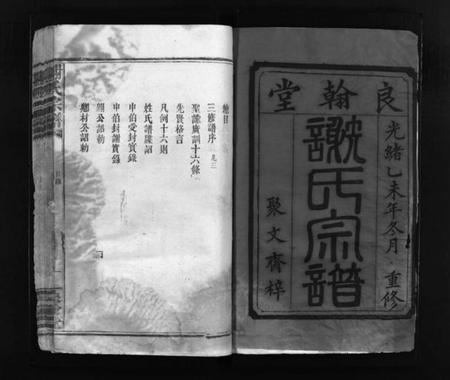 光緒乙未年冬月重修
謝氏宗譜
良翰堂
聚文齋梓
總目
三修譜序
聖諭廣訓十六條
先賢格言
凡例十六則
姓氏譜牒詔
申伯受封實錄
申伯封謝實錄
翱公詔勅